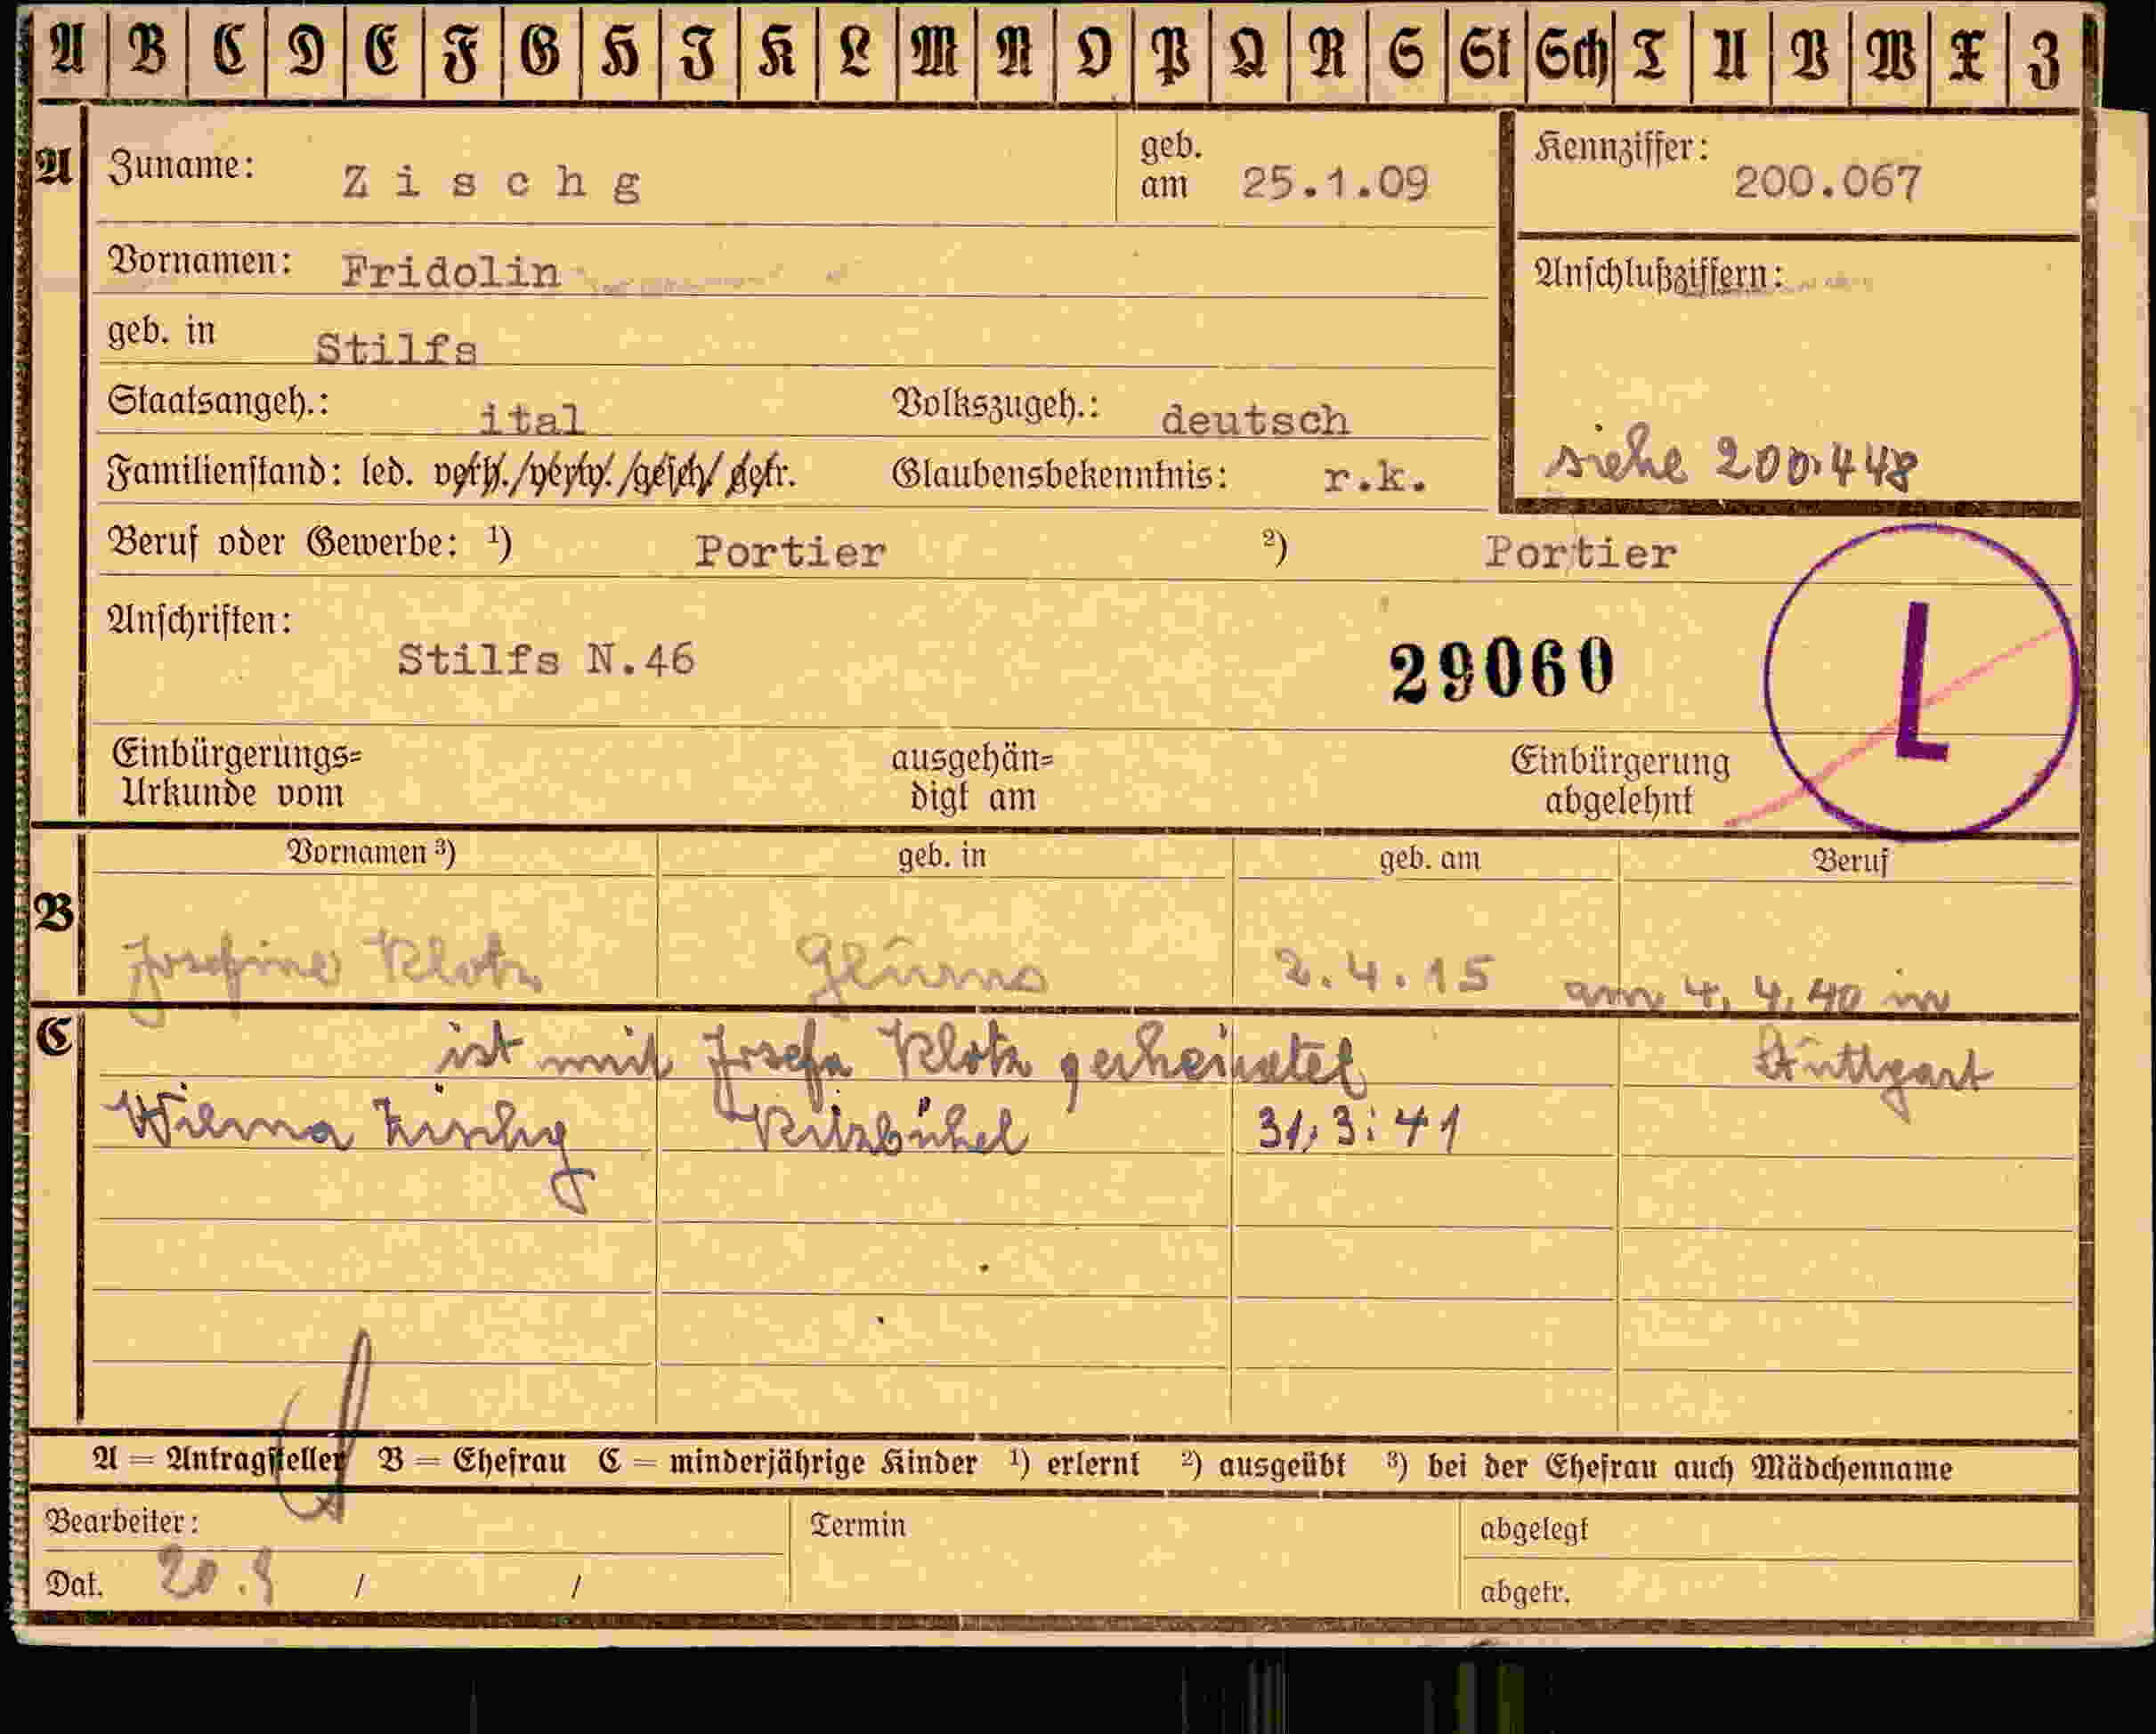 A B C D E F G H I K L M N O P Q R S St Sch T U V W X Z
A Zuname: Zischg geb. am 25.1.09 Kennziffer: 200.067
Vornamen: Fridolin Anschlußziffern:
geb. in Stilfs
Staatsangeh.: ital Volkszugeh.: deutsch
siehe 200.448
Familienstand: led. verh./verw./gesch/getr. Glaubensbekenntnis: r.k.
Beruf oder Gewerbe: 1) Portier 2) Portier
Anschriften:
Stilfs N.46 29060 L
Einbürgerungs= ausgehän= Einbürgerung
Urkunde vom digt am abgelehnt
Vornamen 3) geb. in geb. am Beruf
B
Josefine Klotz Glurns 2.4.15 am 4.4.40 in
C ist mit Josefa Klotz geheiratet Stuttgart
Wilma Zischg Kitzbühel 31.3.41
A = Antragsteller B = Ehefrau C = minderjährige Kinder 1) erlernt 2) ausgeübt 3) bei der Ehefrau auch Mädchenname
Bearbeiter: Termin abgelegt
Dat. 20. / / abgetr.